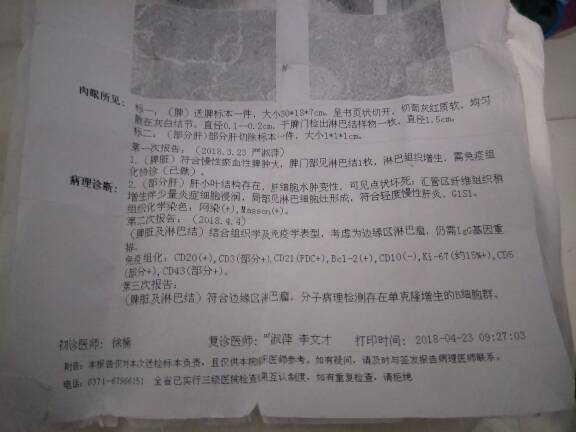 肉眼所见:
标一,(脾)送脾标本一件,大小30*18*7cm,呈书页状切开,切面灰红质软,均匀
散在灰白结节。直径0.1--0.2cm,于脾门检出淋巴结样物一枚,直径1.5cm。
标二:(部分肝)部分肝切除标本一件,大小1*1*1cm。
病理诊断:
第一次报告:(2018.3.23 严淑萍)
1.(脾脏)符合慢性淤血性脾肿大,脾门部见淋巴结1枚,淋巴组织增生,需免疫组
化协诊(已做)。
2.(部分肝)肝小叶结构存在,肝细胞水肿变性,可见点状坏死;汇管区纤维组织稍
增生伴少量炎症细胞浸润,局部见淋巴细胞灶形成,符合轻度慢性肝炎,G1S1。
组织化学染色:网染(+),Masson(+)。
第二次报告:(2018.4.4)
(脾脏及淋巴结)结合组织学及免疫学表型,考虑为边缘区淋巴瘤,仍需IgG基因重
排。
免疫组化:CD20(+),CD3(部分+),CD21(FDC+),Bcl-2(+),CD10(-),Ki-67(约15%+),CD5
(部分+),CD43(部分+)。
第三次报告:
(脾脏及淋巴结)符合边缘区淋巴瘤,分子病理检测存在单克隆增生的B细胞群。
初诊医师: 徐 复诊医师: 严淑萍 李文才 打印时间: 2018-04-23 09:27:03
附告:本报告仅对本次送检标本负责,且仅供本院临床医师参考。如有疑问,请及时与签发报告病理医师联系。
电话:0371-67966151 全省已实行三级医院检查结果互认制度,如有重复检查,请拒绝